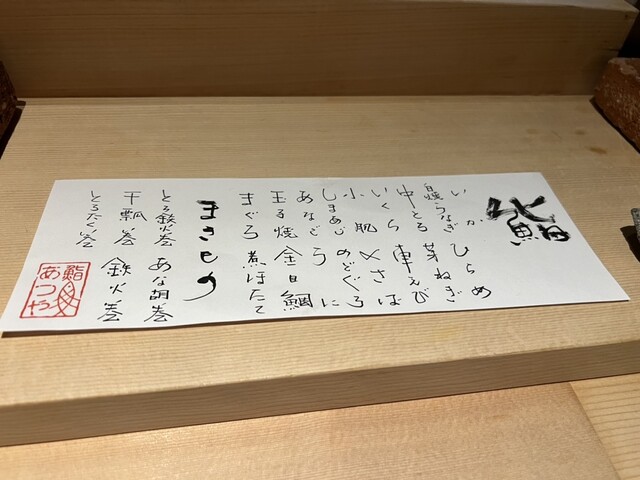 鮨
いか ひらめ
白焼うなぎ 芽ねぎ
中とろ 車えび
いくら 〆さば
小肌 のどぐろ
しまあじ うに
あなご 金目鯛
玉子焼 煮ほたて
まぐろ
まきもの
とろ鉄火巻 あな胡巻
干瓢巻 鉄火巻
とろたく巻
鮨
あつや